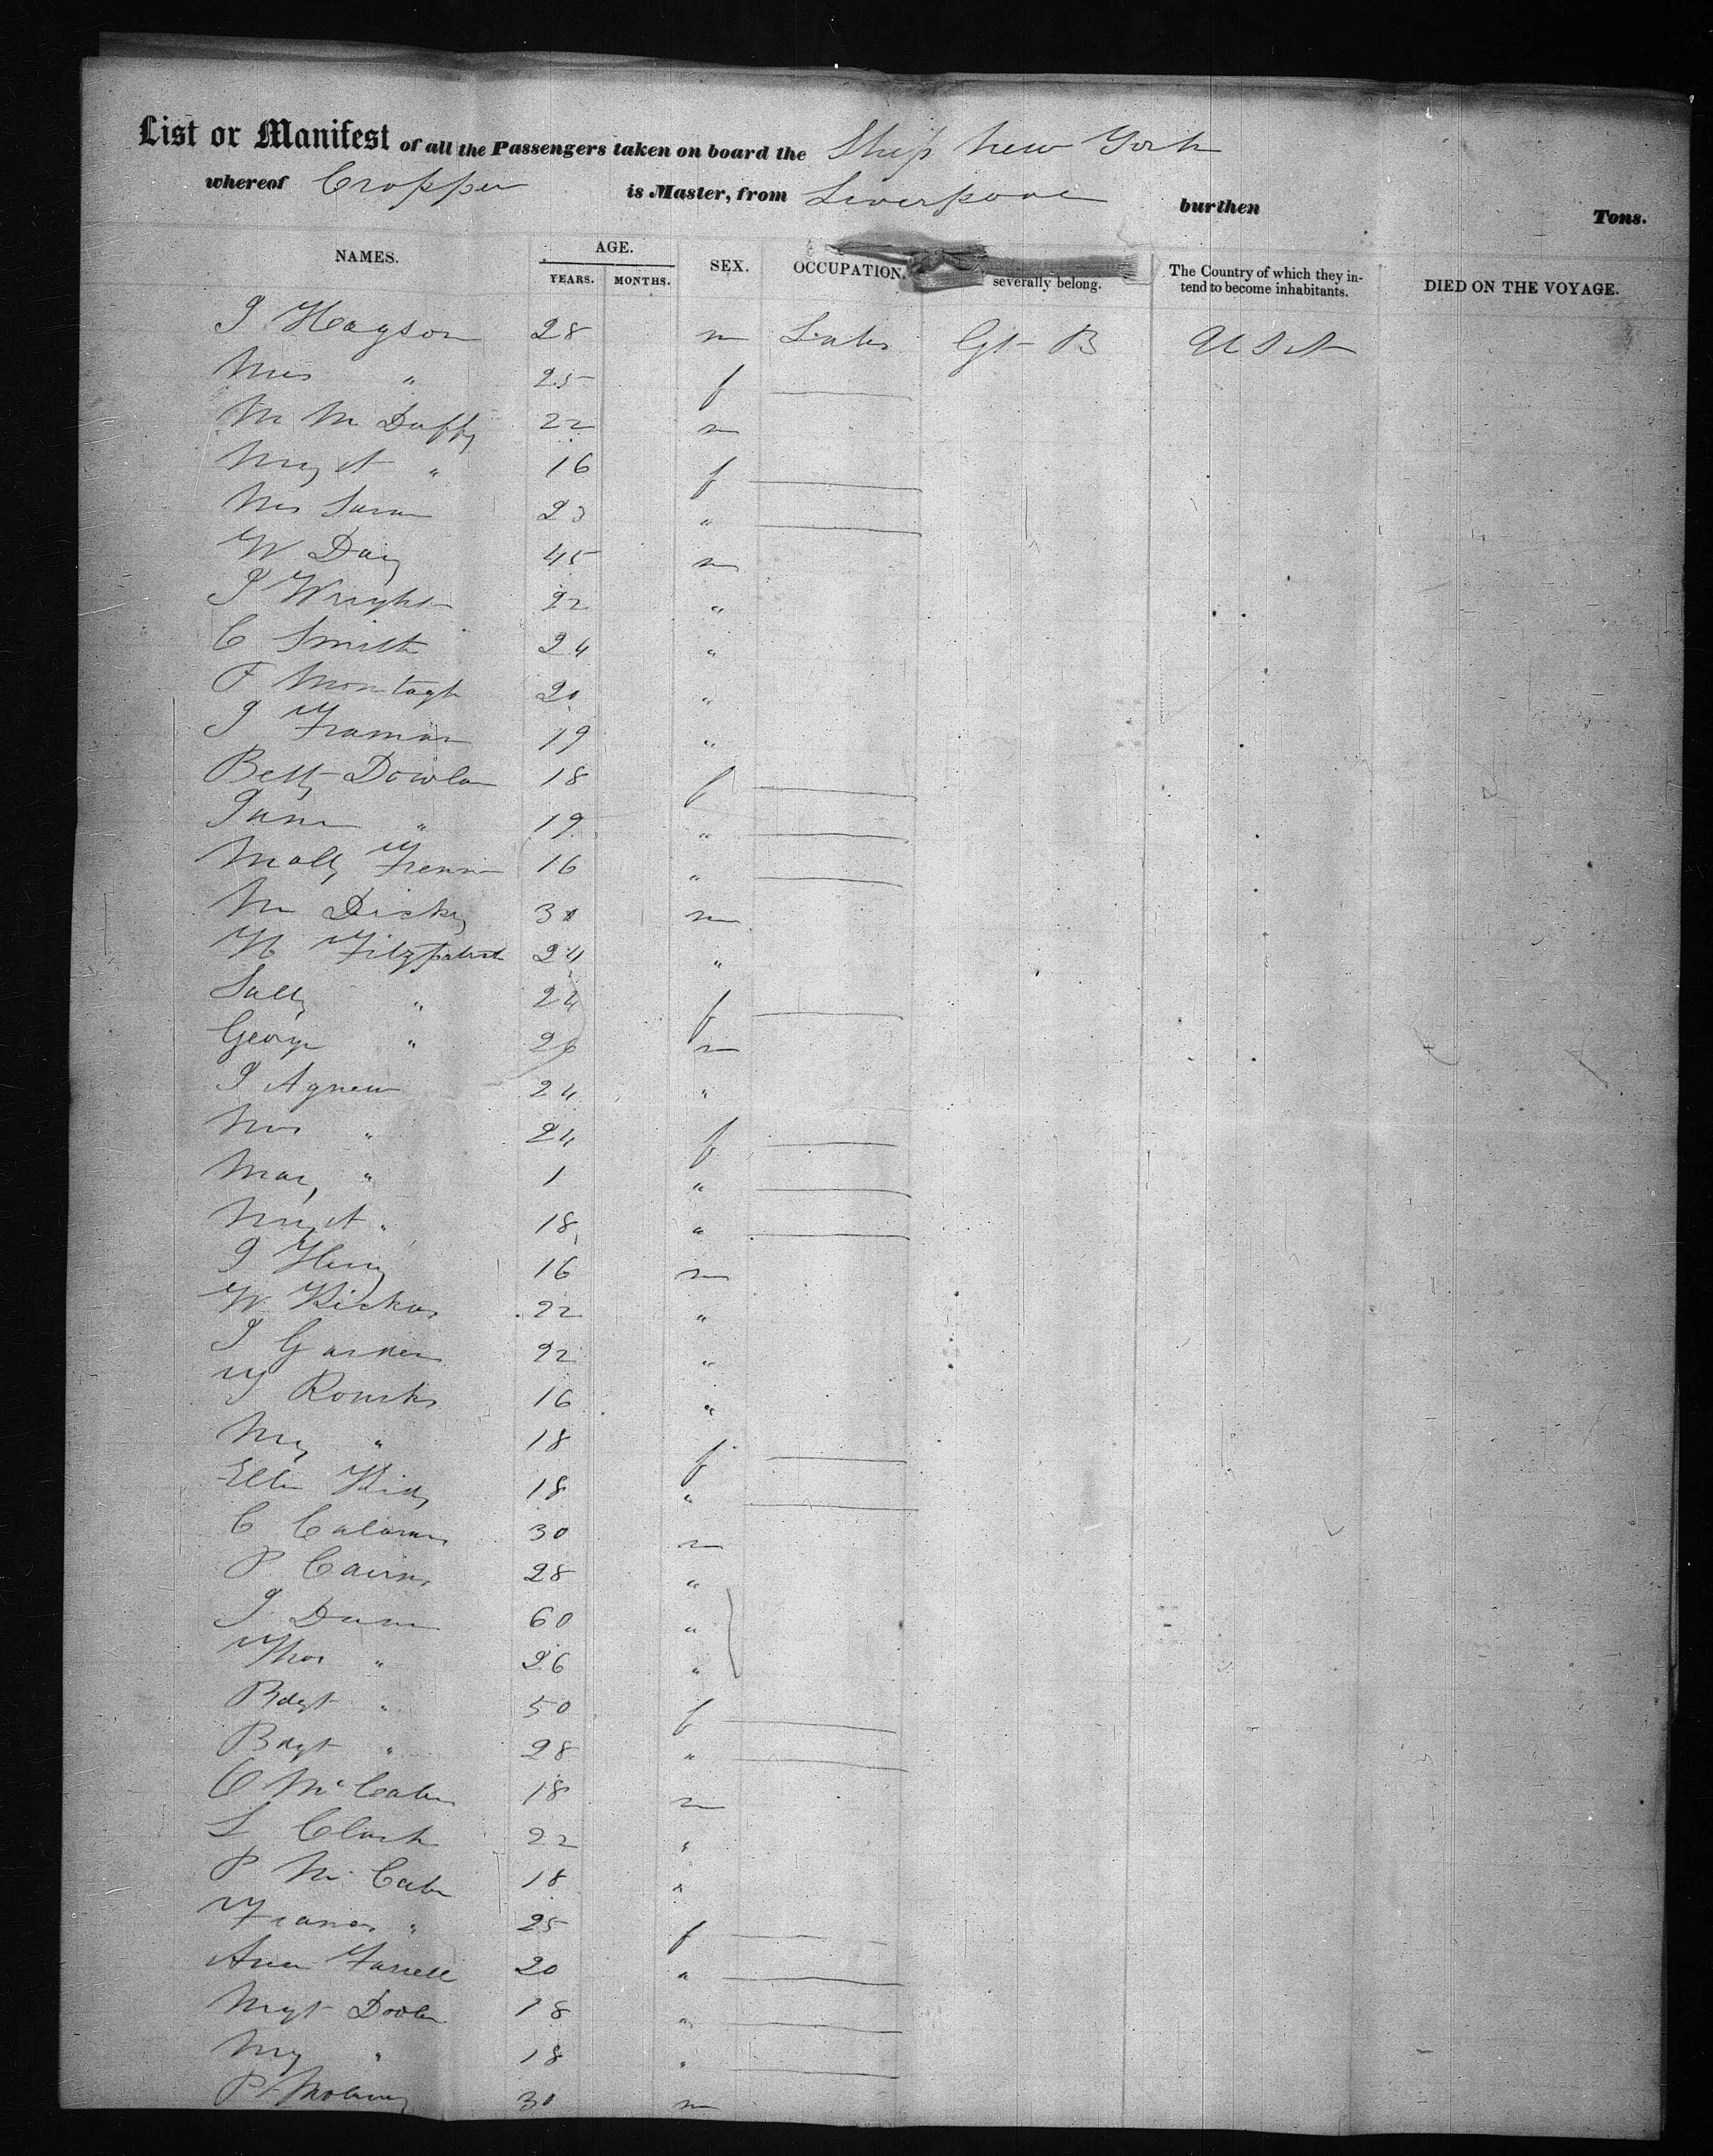 List or Manifest of all the Passengers taken on board the Ship New York
whereof Cropper is Master, from Liverpool burthen Tons.
NAMES. AGE. YEARS. MONTHS. SEX. OCCUPATION. severally belong. The Country of which they intend to become inhabitants. DIED ON THE VOYAGE.
28 m Gt B U S A
Mrs " 25 f
Duffy 22 m
Mrgt " 16 f
Mrs 23 "
W Day 45 m
J Wright 22 "
C Smith 24 "
F Montagh 20 "
J 19 "
Betty Dowlan 18 f
Jane " 19 "
Mally 16 "
M Dickey 30 m
H Fitzpatrick 24 "
Sally " 24 f
George " 26 m
J Agnew 24 "
Mrs " 24 f
Mary " 1 "
Mrgt " 18 "
J Henry 16 m
W 22 "
J 22 "
T Rourke 16 "
My " 18 f
Ellen 18 "
C 30 m
P. Cairns 28 "
J. Dunn 60 "
Thos " 26 "
Bdgt " 50 f
Bdgt " 28 "
C McCabe 18 m
L Clark 22 "
P McCabe 18 "
Frances " 25 f
Ann Farrell 20 "
Mrgt 18 "
My " 18 "
P 30 m